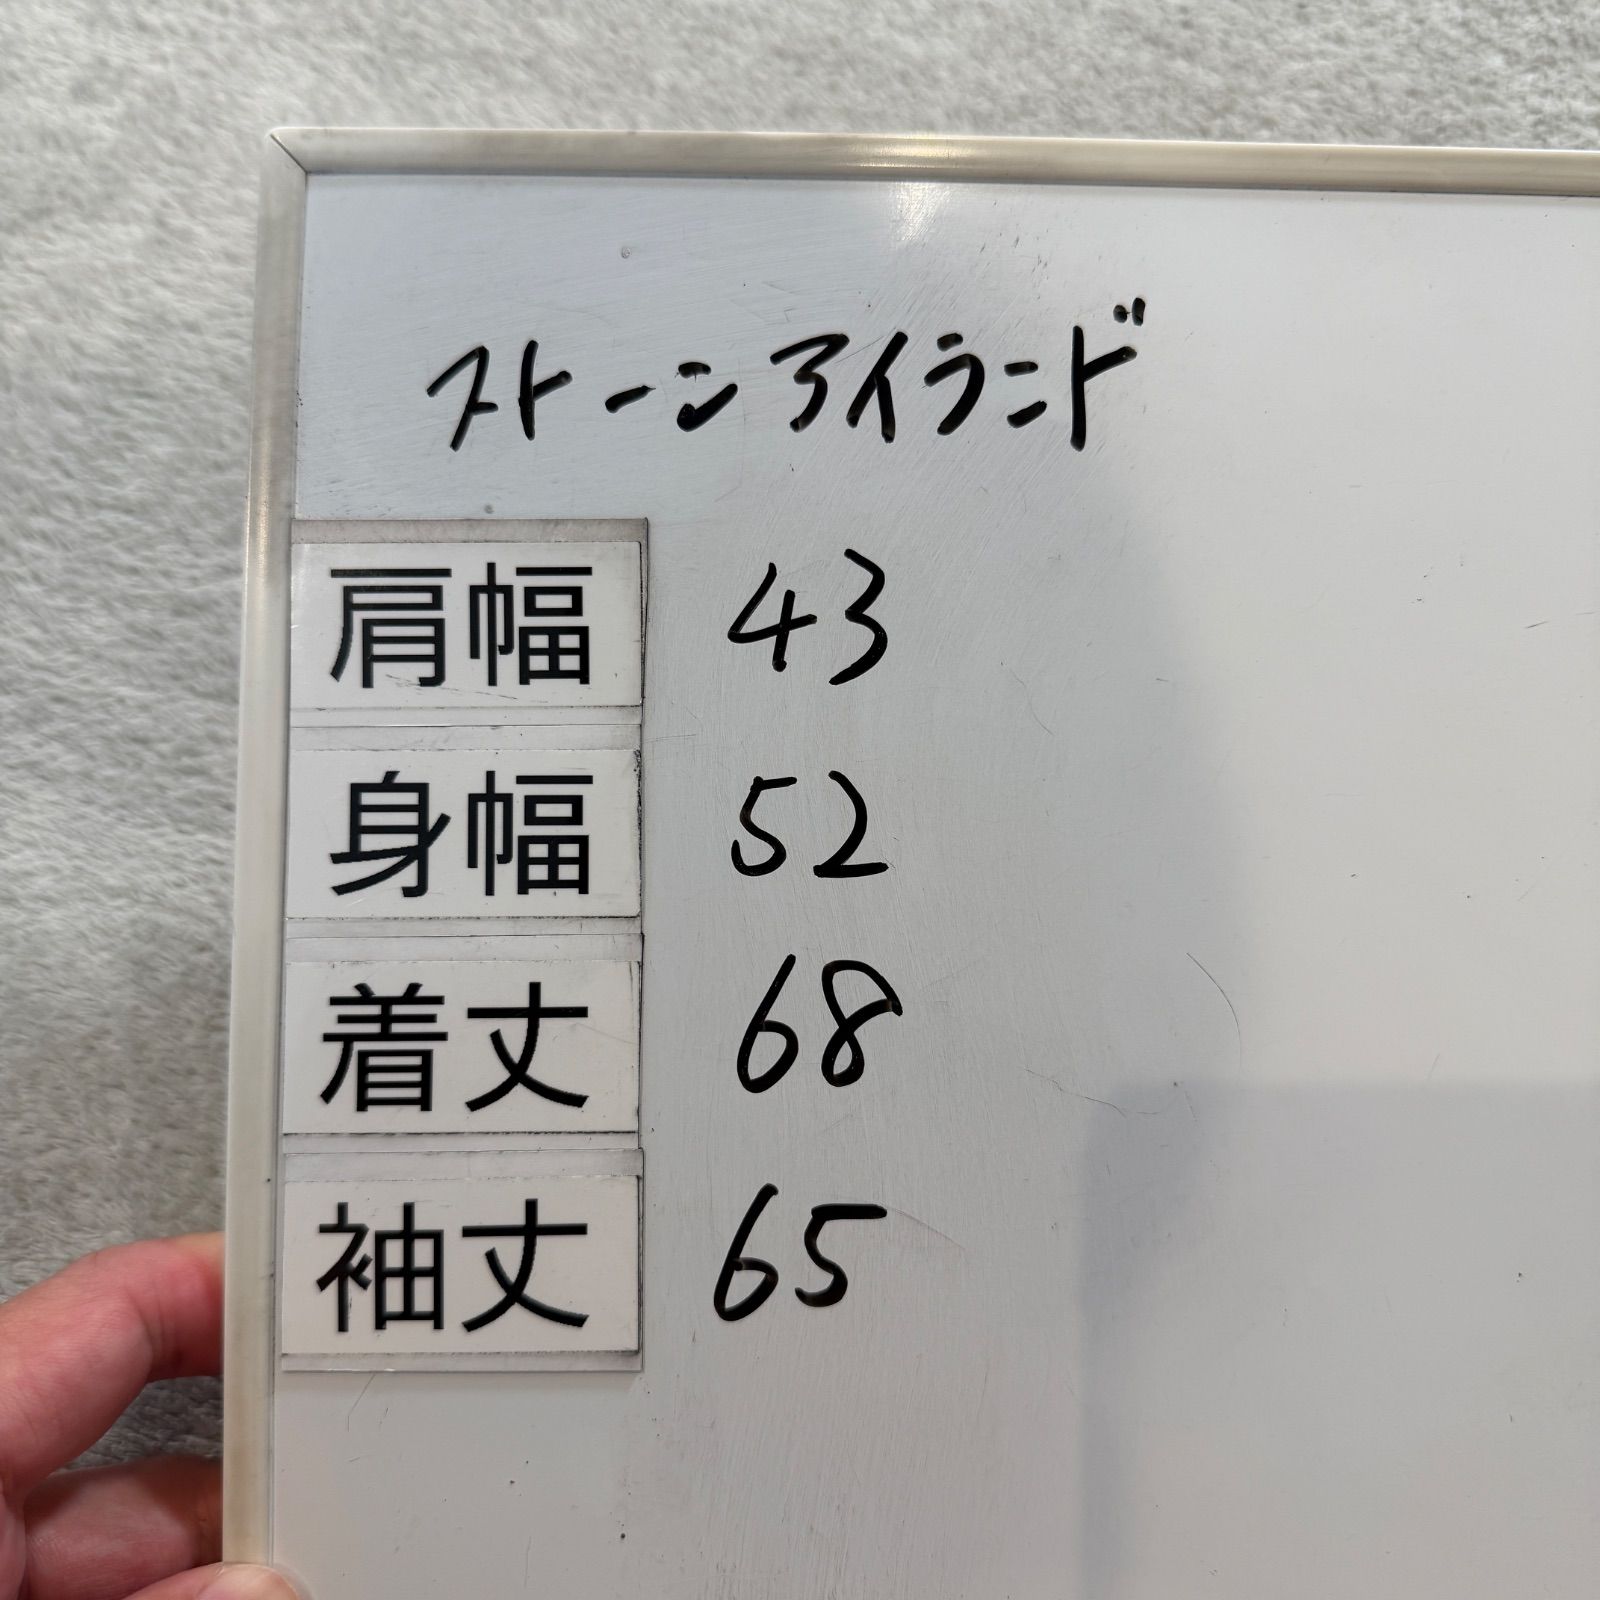 ストーンアイランド
肩幅 43
身幅 52
着丈 68
袖丈 65